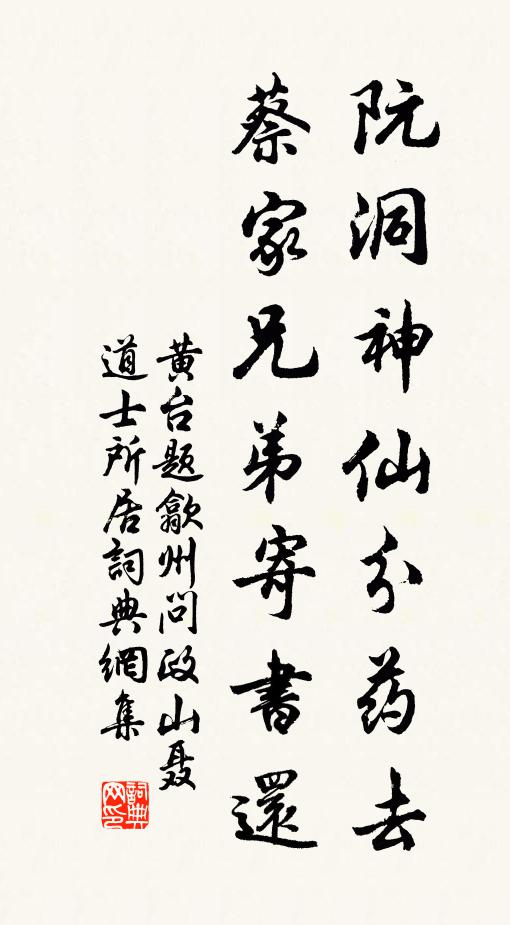 阮洞神仙分药去
蔡家兄弟寄書還
黄台题歙州问政山聂
道士所居詞典網集
詞典
网印